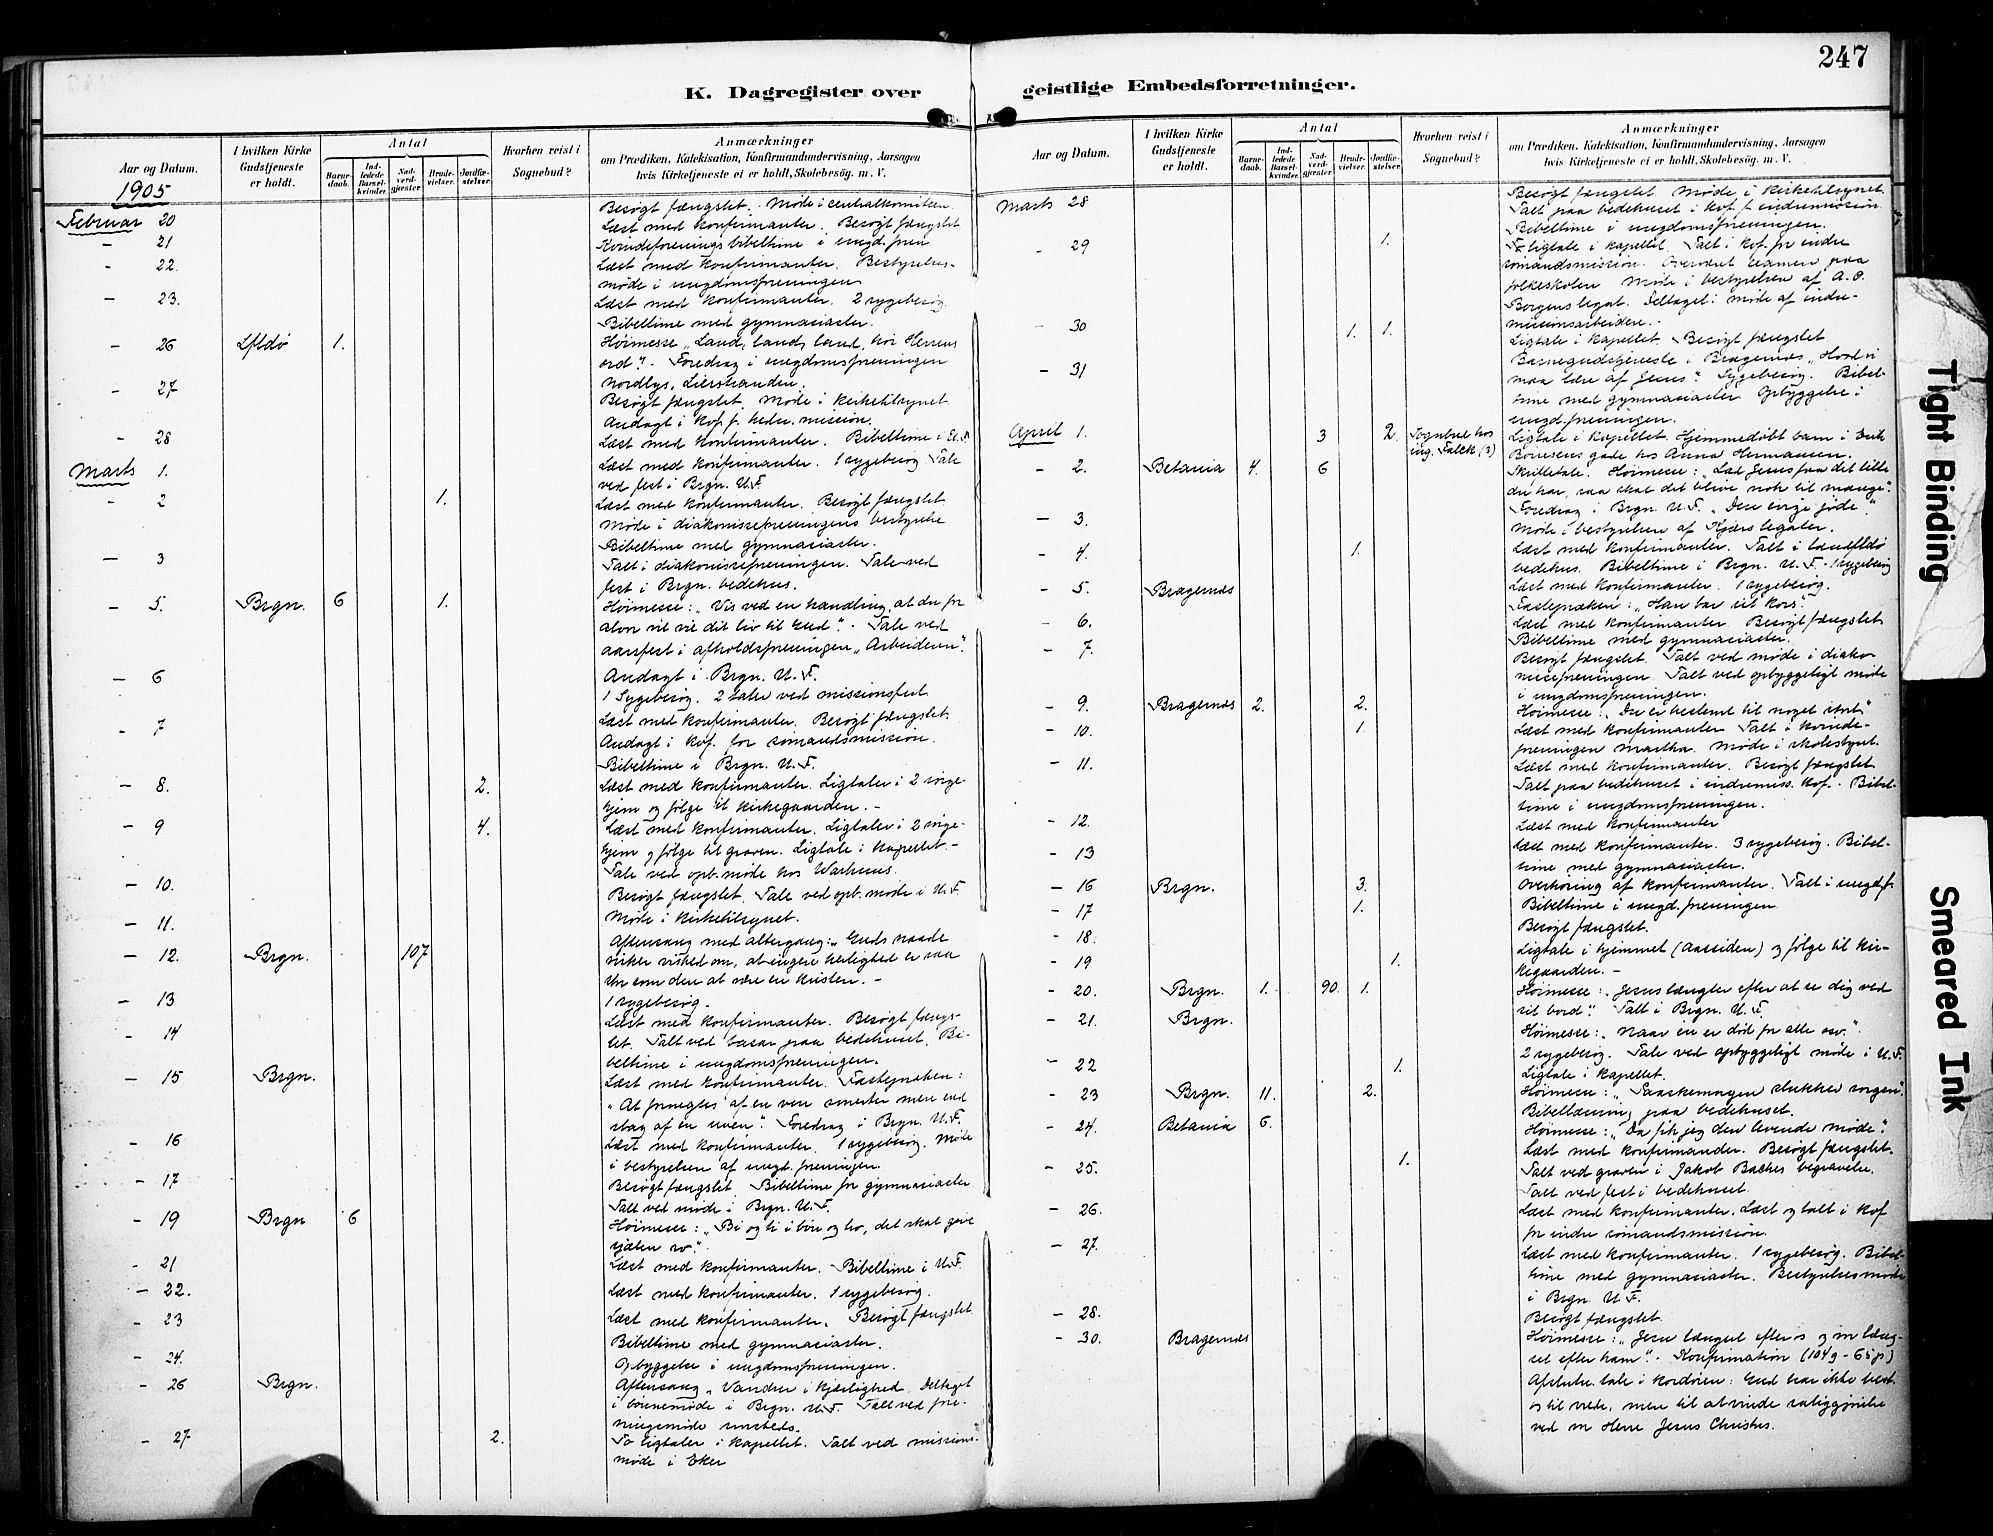 247
K. Dagregister over geistlige Embedsforretninger.
Aar og Datum.
I hvilken Kirke Gudstjeneste er holdt.
Antal
Barnedaab.
Indledede Barselkvinder.
Nadverdgjæster
Brudevielser.
Jordfæstelser.
Hvorhen reist i Sognebud?
Anmærkninger
om Prædiken, Katekisation, Konfirmandundervisning, Aarsagen
hvis Kirketjeneste ei er holdt, Skolebesøg. m. V.
1905
Februar 20 Besøgt fængslet. Møde i centralkomiteen.
- 21 Læst med konfirmanter. Besøgt fængslet
Kvindeforenings bibeltime i ungd.fren
- 22. Læst med konfirmanter. Bestyrelses-
møde i ungdomsfreningen
- 23. Læst med konfirmanter. 2 sygebesøg.
Bibeltime med gymnasiaster.
- 26 Lfldø 1. Høimesse "Land, land, land, hør Herrens
ord". Foredrag i ungdomsfreningen
Nordlys, Lierstranden.
- 27 Besøgt fængslet. Møde i kirketilsynet
Andagt i kvf. f. heden. mission.
- 28 Læst med konfirmanter. Bibeltime i U.F.
Marts 1. Læst med konfirmanter. 1 sygebesøg. Tale
ved fest i Brgn. U.F.
- 2 1. Læst med konfirmanter. Besøgt fængslet
Møde i diakonissefreningens bestyrelse
Bibeltime med gymnasiaster.
- 3 Talt i diakonissefreningen. Tale ved
fest i Brgn. bedehus.
- 5. Brgn. 6 1. Høimesse: "Vis ved en handling, at du fr
alvor vil vie dit liv til Gud". Tale ved
aarsfest i afholdsfreningen "Arbeideren".
- 6 Andagt i Brgn. U.F.
1 Sygebesøg. 2 taler ved missionsfest
- 7 Læst med konfirmanter. Besøgt fængslet.
Andagt i kvf. for sømandsmission.
Bibeltime i Brgn. U.F.
- 8. 2. Læst med konfirmanter. Ligtaler i 2 sørge-
hjem og følge til kirkegaarden. -
- 9 4. Læst med konfirmanter. Ligtaler i 2 sørge-
hjem og følge til graven. Ligtale i kapellet. -
Tale ved opb. møde hos Warhuus.
- 10. Besøgt fængslet. Tale ved opb. møde i U.F.
- 11. Møde i kirketilsynet.
- 12. Brgn. 107 Aftensang med altergang: "Guds naade
virker vished om, at ingen herlighed er saa
stor som den at være en kristen. -
- 13 1 sygebesøg.
- 14 Læst med konfirmanter. Besøgt fængs-
let. Talt ved basar paa bedehuset. Bi-
beltime i ungdomsfreningen.
- 15 Brgn. Læst med konfirmanter. Fastepræken:
"At fornegtes af en ven smerter mere end
slag af en uven". Foredrag i Brgn. U.F.
- 16 Læst med konfirmanter. 1 sygebesøg. Møde
i bestyrelsen af ungd. freningen.
- 17 Besøgt fængslet. Bibeltime for gymnasiaster
Talt ved møde i Brgn. U.F.
- 19 Brgn 6 Høimesse: "Bi og ti i bøn og tro, det skal give
sjælen ro".
- 21 Læst med konfirmanter. Bibeltime i U.F.
- 22. Læst med konfirmanter. 1 sygebesøg.
- 23 Læst med konfirmanter. Besøgt fængslet
Bibeltime med gymnasiaster.
- 24. Opbyggelse i ungdomsfreningen.
- 26 Brgn. Aftensang "Vandrer i kjærlighed. Deltaget
i bønnemøde i Brgn. U.F. Talt ved fre-
ningsmøde
- 27 2. To ligtaler i kapellet. Talt ved missions-
møde i Eker
Aar og Datum.
I hvilken Kirke Gudstjeneste er holdt.
Antal
Barnedaab.
Indledede Barselkvinder.
Nadverdgjæster
Brudevielser.
Jordfæstelser.
Hvorhen reist i Sognebud?
Anmærkninger
om Prædiken, Katekisation, Konfirmandundervisning, Aarsagen
hvis Kirketjeneste ei er holdt, Skolebesøg. m. V.
Marts 28 Besøgt fængslet. Møde i kirketilsynet
Talt paa bedehuset i kvf. f. indremission
Bibeltime i ungdomsfreningen.
- 29 1. To ligtale i kapellet. Talt i kvf. fr indre
sømandsmission. Overværet examen paa
folkeskolen. Møde i bestyrelsen af A. O.
Borgens legat. Deltaget i møde af indre-
missionsarbeidere.
- 30 1. 1. Ligtale i kapellet. Besøgt fængslet
- 31 Barnegudstjeneste i Bragernæs "Hvad vi
maa lære af Jesus". Sygebesøg. Bibel-
time med gymnasiaster Opbyggelse i
ungd.freningen.
April 1. 3 2. Sognebud hos ing. Falck (3) Ligtale i kapellet. Hjemmedøbt barn i
gade hos Anna Hermansen.
- 2. Betania 4. 6 Skriftetale. Høimesse: "Lad Jesus faa det lille
du har, saa skal det blive nok til mange".
Foredrag i Brgn. U.F. "Den evige jøde".
- 3. Møde i bestyrelsen af Kjærs legater.
- 4. 1. Læst med konfirmanter. Talt i landfldø
bedehus. Bibeltime i Brgn. U.F. 1 sygebesøg
- 5. Bragernæs Læst med konfirmanter. 1 sygebesøg.
Fastepræken: "Han bar sit kors".
- 6. Læst med konfirmanter. Besøgt fængslet
Bibeltime med gymnasiaster.
- 7. Besøgt fængslet. Talt ved møde i diako-
nissefreningen. Talt ved opbyggeligt møde
i ungdomsfreningen.
- 9. Bragernæs 2. 2. Høimesse: "Du er bestemt til noget stort."
- 10. 1. Læst med konfirmanter Talt i kvinde-
freningen Martha. Møde i skolestyret.
- 11. Læst med konfirmanter. Besøgt fængslet
Talt paa bedehuset i indremiss. kvf. Bibel-
time i ungdomsfreningen.
- 12. Læst med konfirmanter
- 13 Læst med konfirmanter. 3 sygebesøg. Bibel-
time med gymnasiaster.
- 16 Brgn. 3. Overhøring af konfirmanter. Talt i ungd.f.
- 17 1. Bibeltime i ungd.freningen
- 18. Besøgt fængslet.
- 19 1. Ligtale i hjemmet (Aassiden) og følge til kir-
kegaarden. -
- 20. Brgn. 1. 90. 1. Høimesse: "Jesus længter efter at se dig ved
sit bord". Talt i Brgn. U.F.
- 21. Brgn. Høimesse: "Naar én er død for alle osv."
2 sygebesøg. Tale ved opbyggeligt møde i U.F.
- 22 1. Ligtale i kapellet.
- 23 Brgn. 11. 2. Høimesse: "Paaskemorgen slukker sorgen".
Bibellæsning paa bedehuset.
- 24. Betania 6. Høimesse: "Da fik jeg den levende møde".
- 25. 1. Læst med konfirmander. Besøgt fængslet.
Talt ved graven i Jakob Baches begravelse.
Talt ved fest i bedehuset.
- 26. Læst med konfirmanter. Læst og talt i kvf
fr indre sømandsmission.
- 27. Læst med konfirmanter. 1 sygebesøg. Bibel-
time med gymnasiaster. Bestyrelsesmøde
i Brgn. U.F.
- 28. Besøgt fængslet.
- 30. Bragernæs Høimesse: "Jesu længsel efter os og vor læng-
sel efter ham". - Konfirmation (104 g - 65 p)
Afsluttn. tale i kordøren: Gud har ikke best.
os til vrede, men til at vinde saliggjørelse
ved vor Herre Jesus Christus.
Tight Binding
Smeared Ink